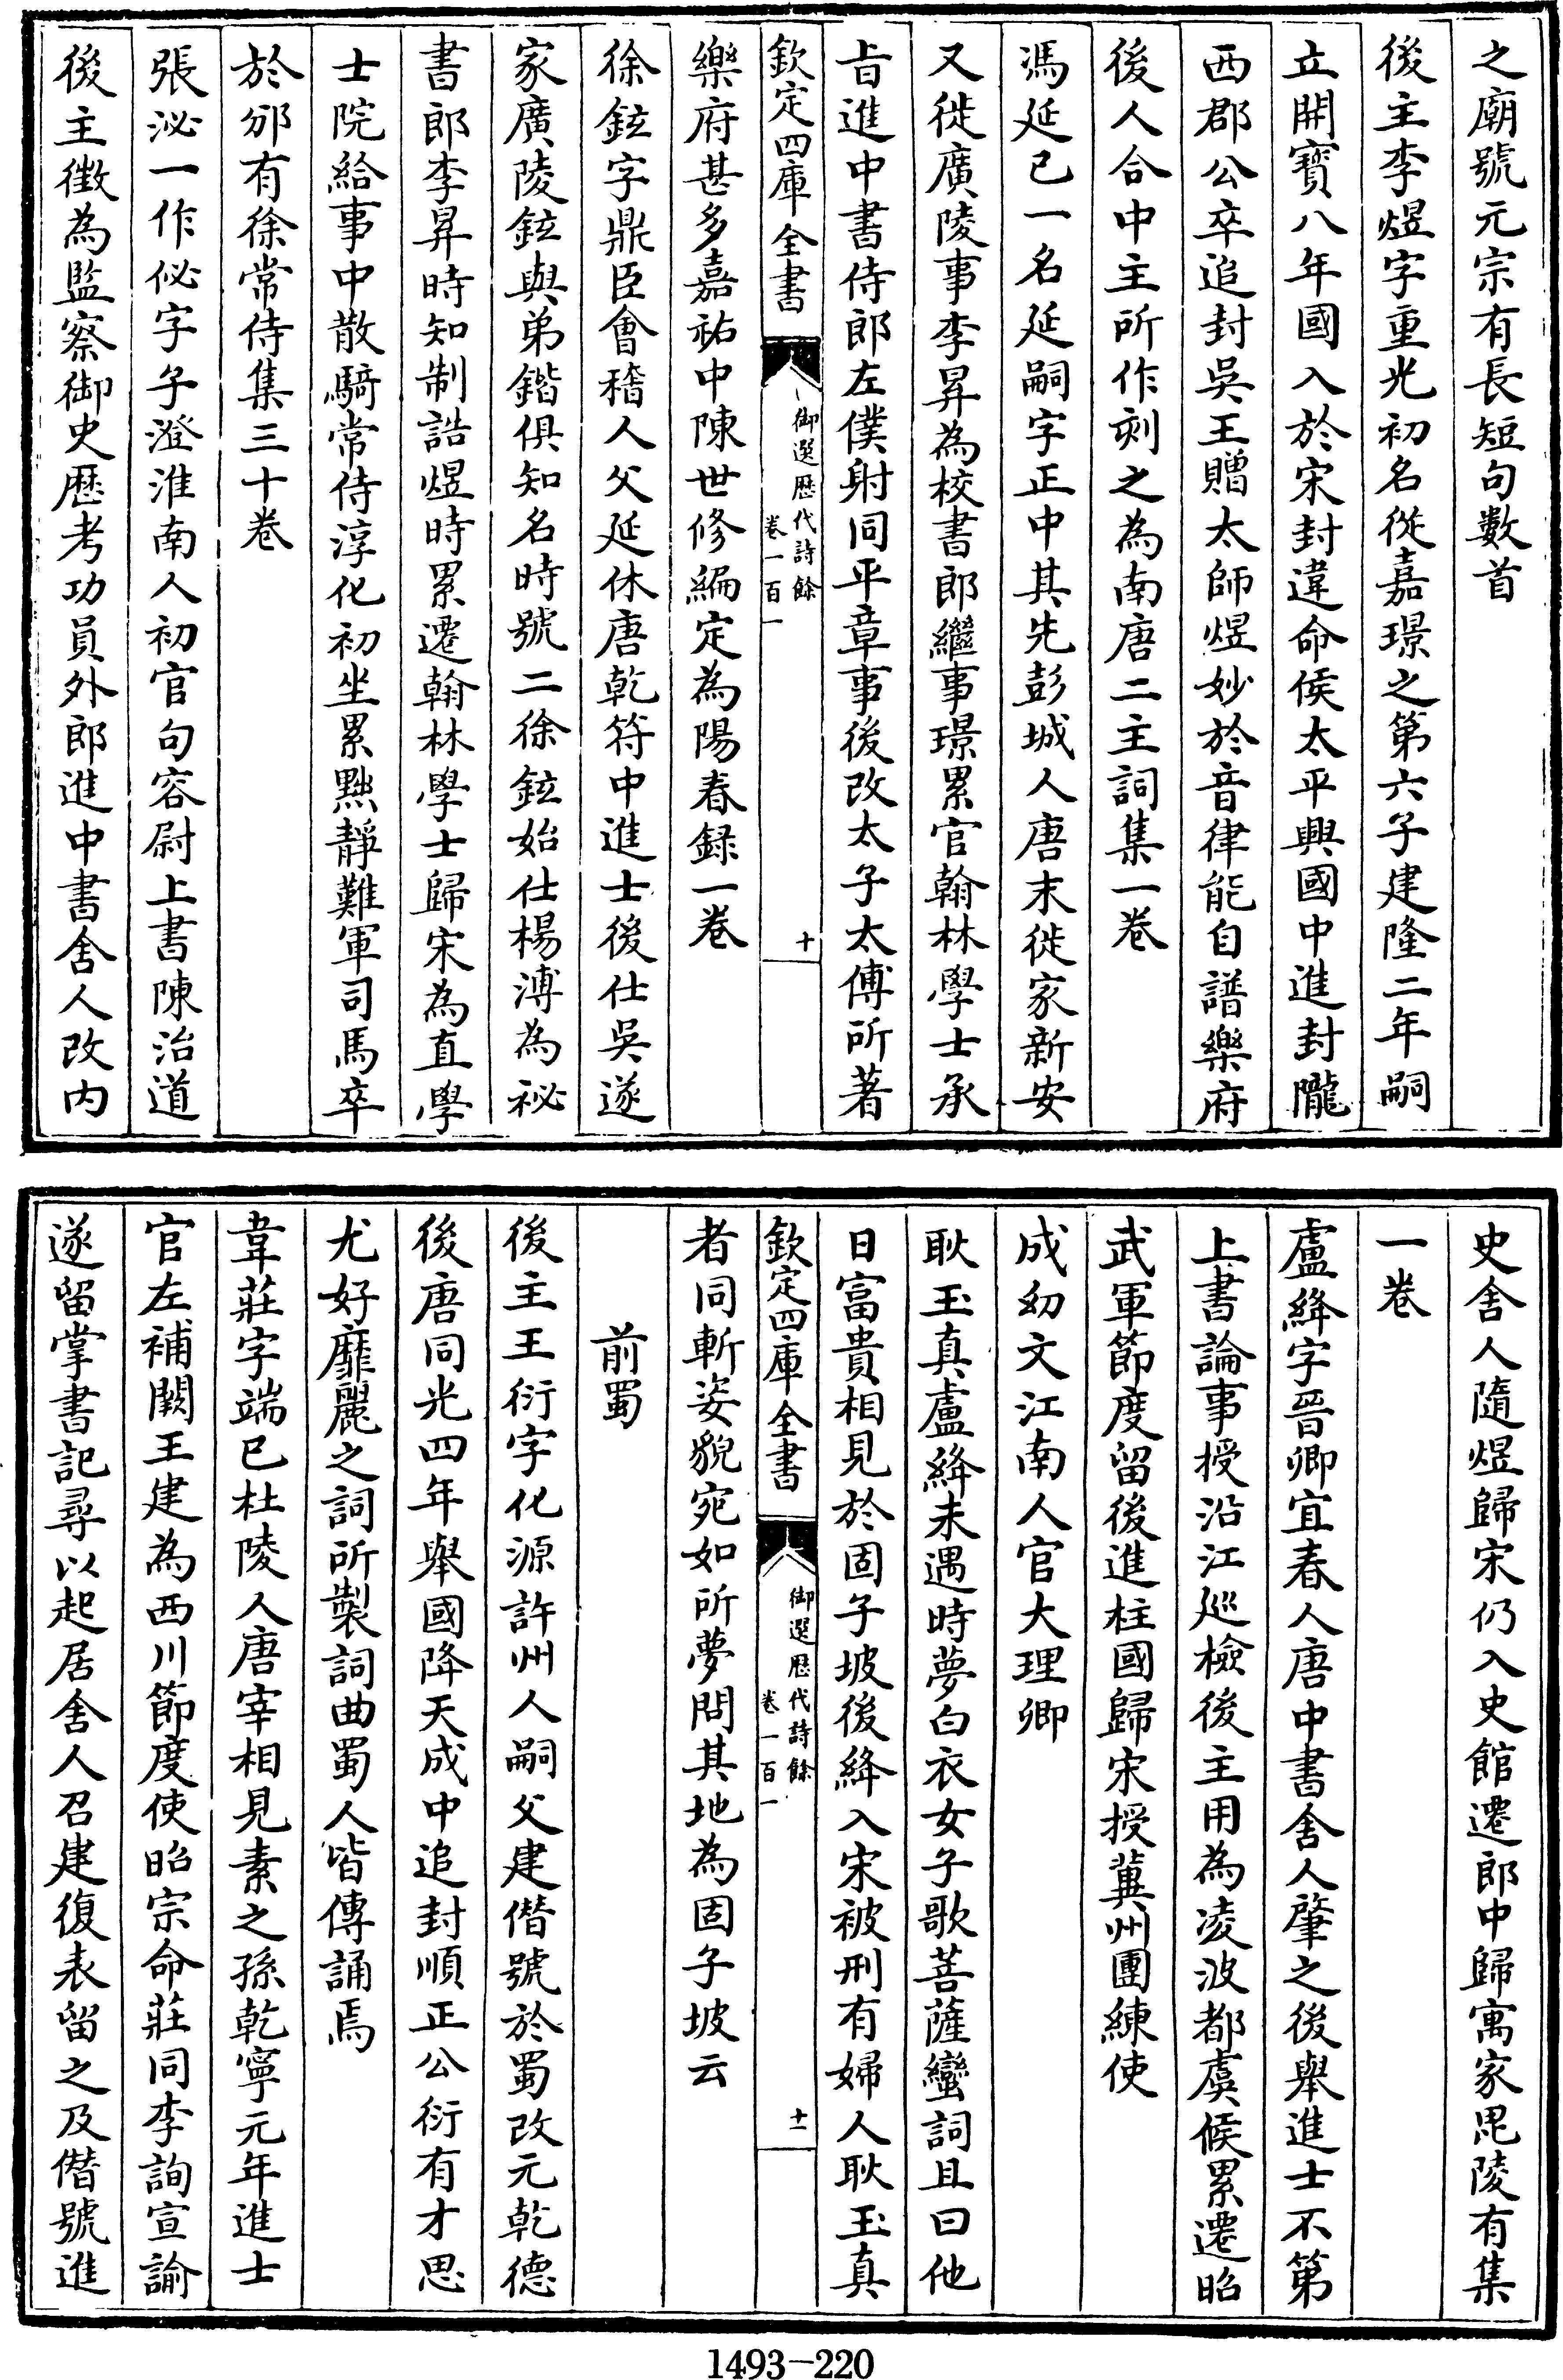 之廟號元宗有長短句數首
後主李煜字重光初名從嘉璟之第六子建隆二年嗣
立開寳八年國入於宋封違命侯太平興國中進封隴
西郡公卒追封吳王贈太師煜妙於音律能自譜樂府
後人合中主所作刻之為南唐二主詞集一卷
馮延已一名延嗣字正中其先彭城人唐末徙家新安
又徙廣陵事李昪為校書郎繼事璟累官翰林學士承
㫖進中書侍郎左僕射同平章事後改太子太傅所著
欽定四庫全書
御選歴代詩餘
卷一百一
十
樂府甚多嘉祐中陳世修編定為陽春録一卷
徐鉉字鼎臣會稽人父延休唐乾符中進士後仕吳遂
家廣陵鉉與弟鍇俱知名時號二徐鉉始仕楊溥為秘
書郎李昪時知制誥煜時累遷翰林學士歸宋為直學
士院給事中散騎常侍淳化初坐累黜靜難軍司馬卒
於邠有徐常侍集三十卷
張泌一作佖字子澄淮南人初官句容尉上書陳治道
後主徵為監察御史歴考功員外郎進中書舍人改内
史舍人隨煜歸宋仍入史館遷郎中歸寓家毘陵有集
一卷
盧絳字晉卿宜春人唐中書舍人肇之後舉進士不第
上書論事授沿江廵檢後主用為凌波都虞候累遷昭
武軍節度留後進柱國歸宋授冀州團練使
成幼文江南人官大理卿
耿玉真盧絳未遇時夢白衣女子歌菩薩蠻詞且曰他
日富貴相見於固子坡後絳入宋被刑有婦人耿玉真
欽定四庫全書
御選歴代詩餘
卷一百一
十一
者同斬姿貌宛如所夢問其地為固子坡云
前蜀
後主王衍字化源許州人嗣父建僭號於蜀改元乾德
後唐同光四年舉國降天成中追封順正公衍有才思
尤好靡麗之詞所製詞曲蜀人皆傳誦焉
韋莊字端已杜陵人唐宰相見素之孫乾寧元年進士
官左補闕王建為西川節度使昭宗命莊同李詢宣諭
遂留掌書記尋以起居舍人召建復表留之及僭號進
1493-220